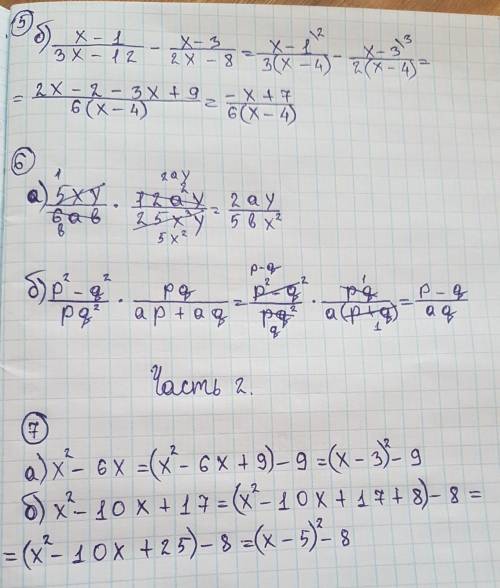 ⑤ б) (x-1)/(3x-12) - (x-3)/(2x-8) = (x-1\2)/(3(x-4)) - (x-3\3)/(2(x-4)) =
= (2x-2-3x+9)/(6(x-4)) = (-x+7)/(6(x-4))
⑥
1 2ay
а) 5xy/6aв · 12a²y/25x³y = 2ay/5вx²
в 5x²
p-q
б) (p²-q²)/(pq²) · pq/(ap+aq) = (p²-q²)/(pq²) · pq/(a(p+q)) = (p-q)/(aq)
q 1
Часть 2.
⑦
а) x²-6x = (x²-6x+9)-9 = (x-3)²-9
б) x²-10x+17 = (x²-10x+17+8)-8 =
= (x²-10x+25)-8 = (x-5)²-8